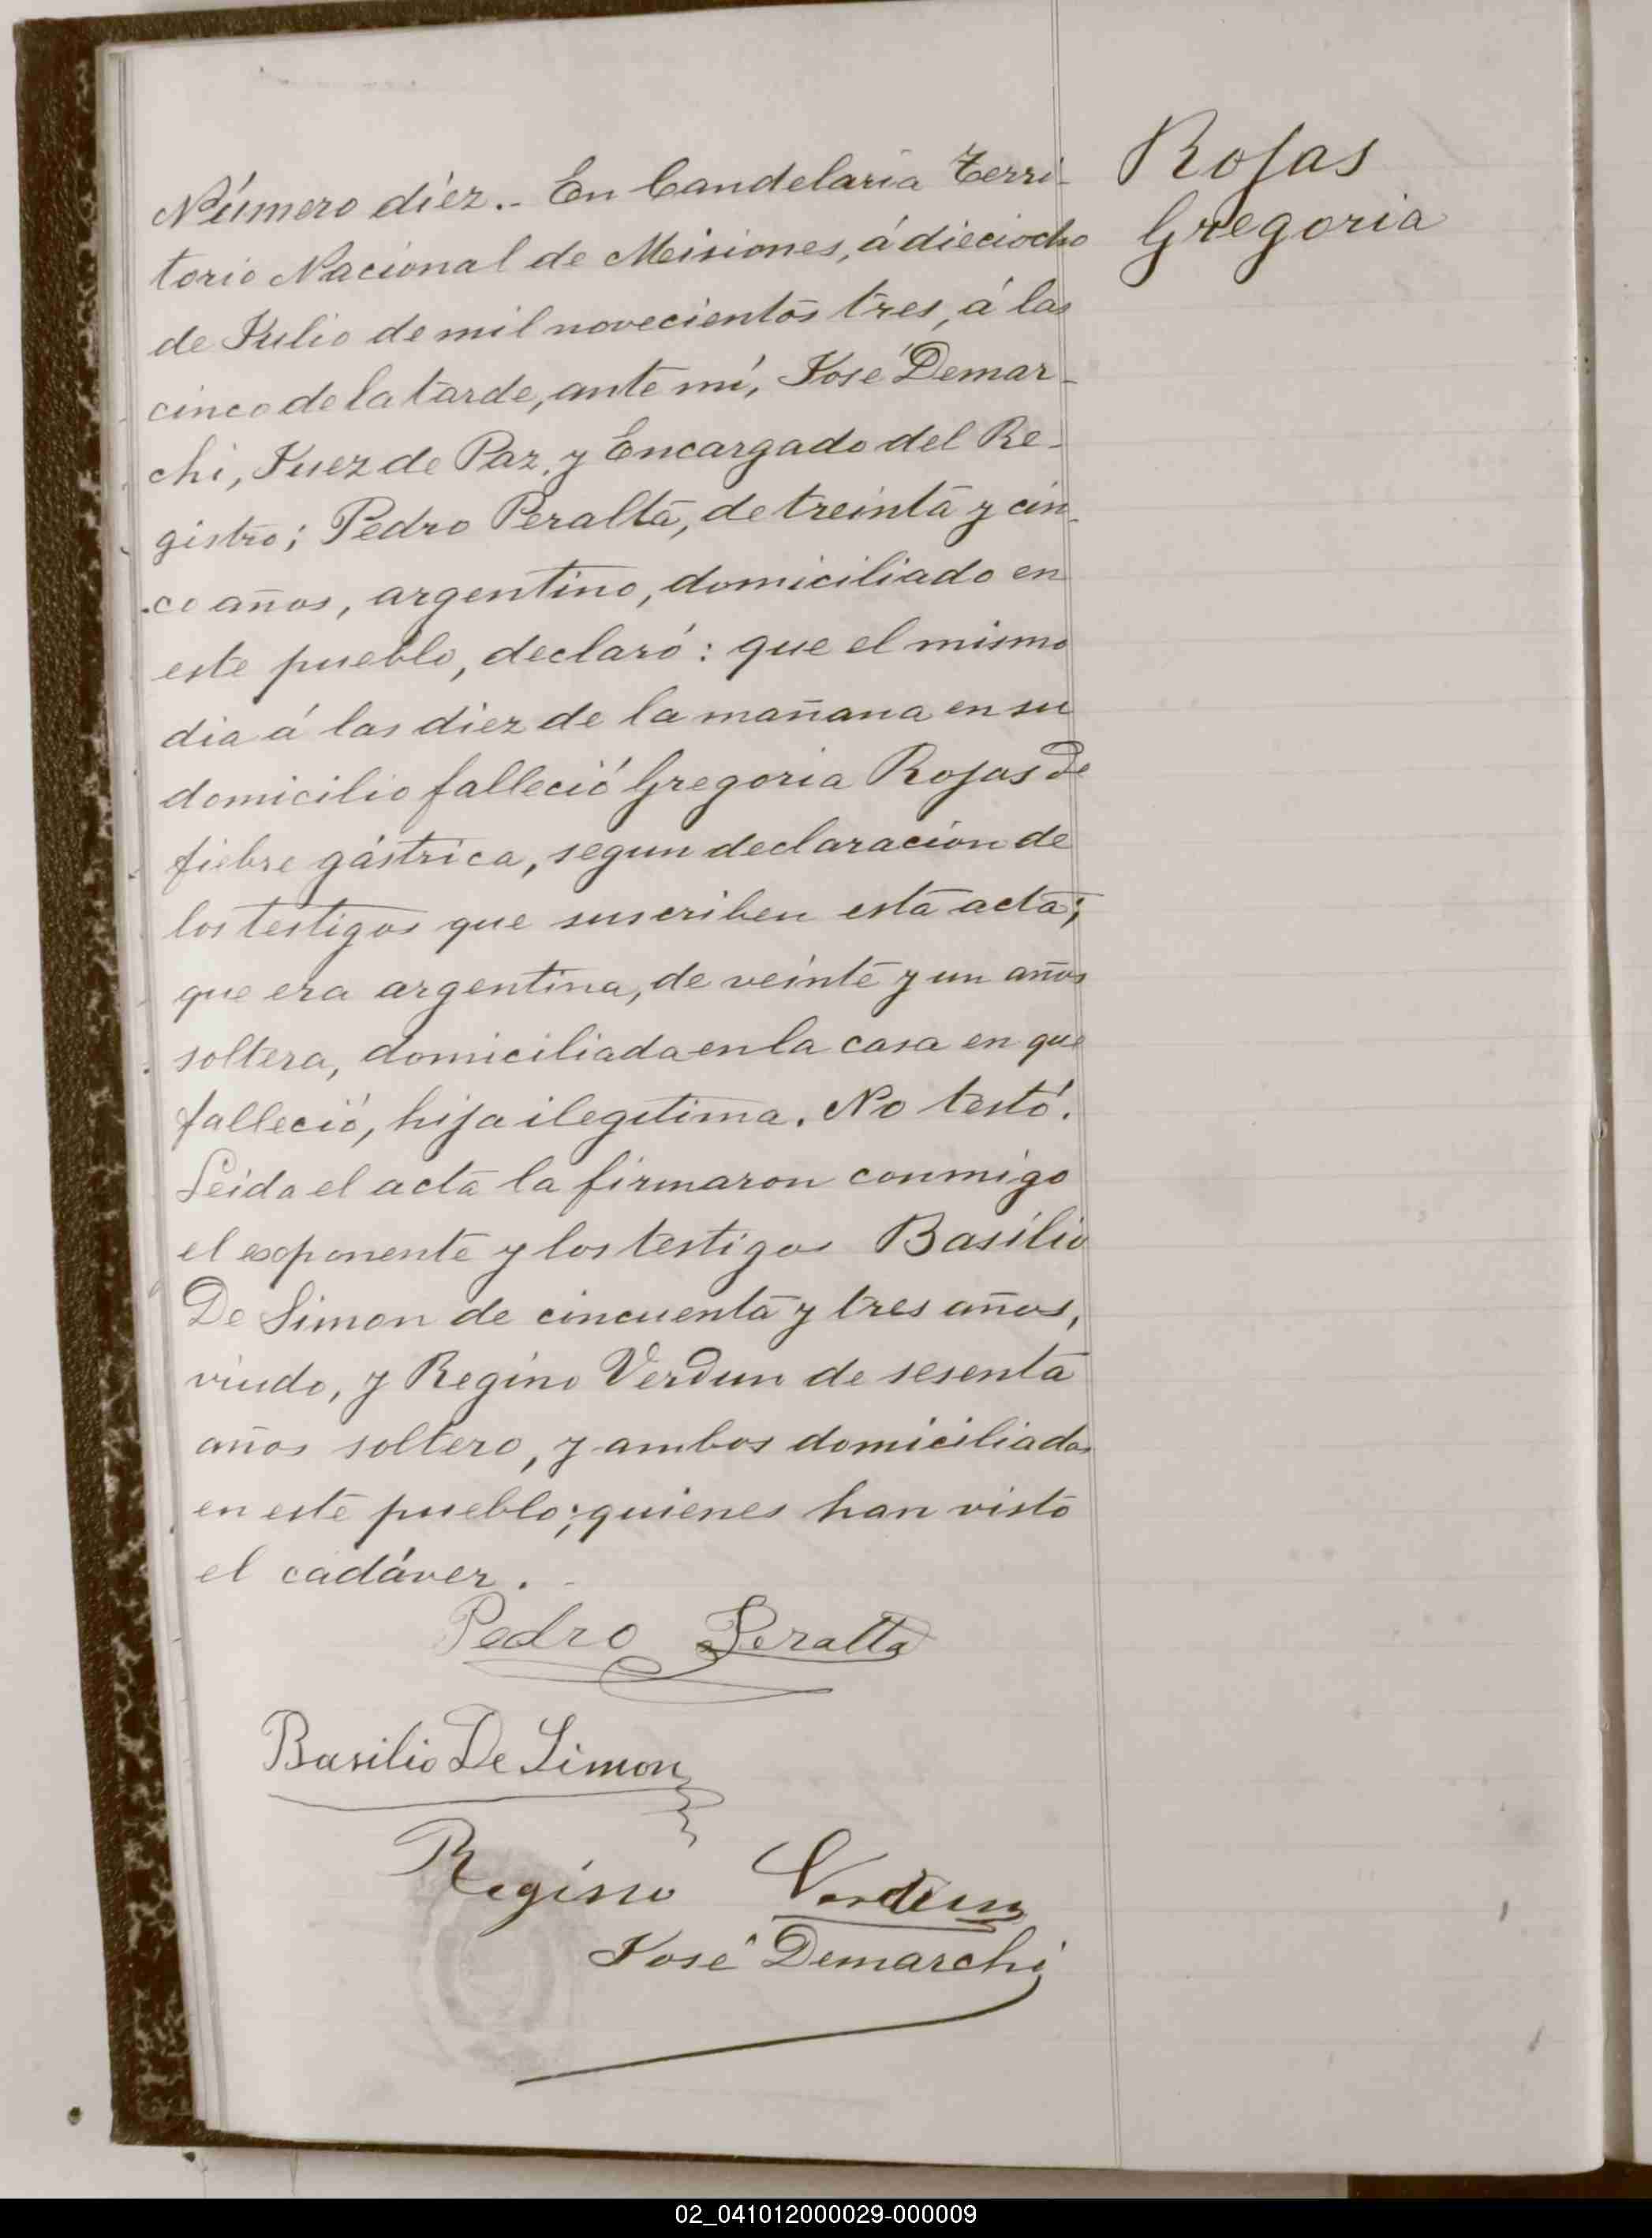 Número diez.- En Candelaria Terri-
torio Nacional de Meisiones, á dieciocho
de Julio de mil novecientos tres, á las
cinco de la tarde, ante mí, José Demar-
chi, Juez de Paz, y Encargado del Re-
gistro; Pedro Peralta, de treinta y cin-
co años, argentino, domiciliado en
este pueblo, declaró: que el mismo
dia á las diez de la mañana en su
domicilio falleció Gregoria Rojas de
fiebre gástrica, segun declaracion de
los testigos que suscriben esta acta;
que era argentina, de veinte y un años
soltera, domiciliada en la casa en que
falleció, hija ilegitima. No testó.
Leida el acta la firmaron conmigo
el exponente y los testigos Basilio
De Simon de cincuenta y tres años,
viudo, y Regino Verdun de sesenta
años soltero, y ambos domiciliados
en este pueblo; quienes han visto
el cadáver. -
Pedro Peralta
Basilio De Simon
Regino Verdun
José Demarchi
Rojas
Gregoria
02_041012000029-000009